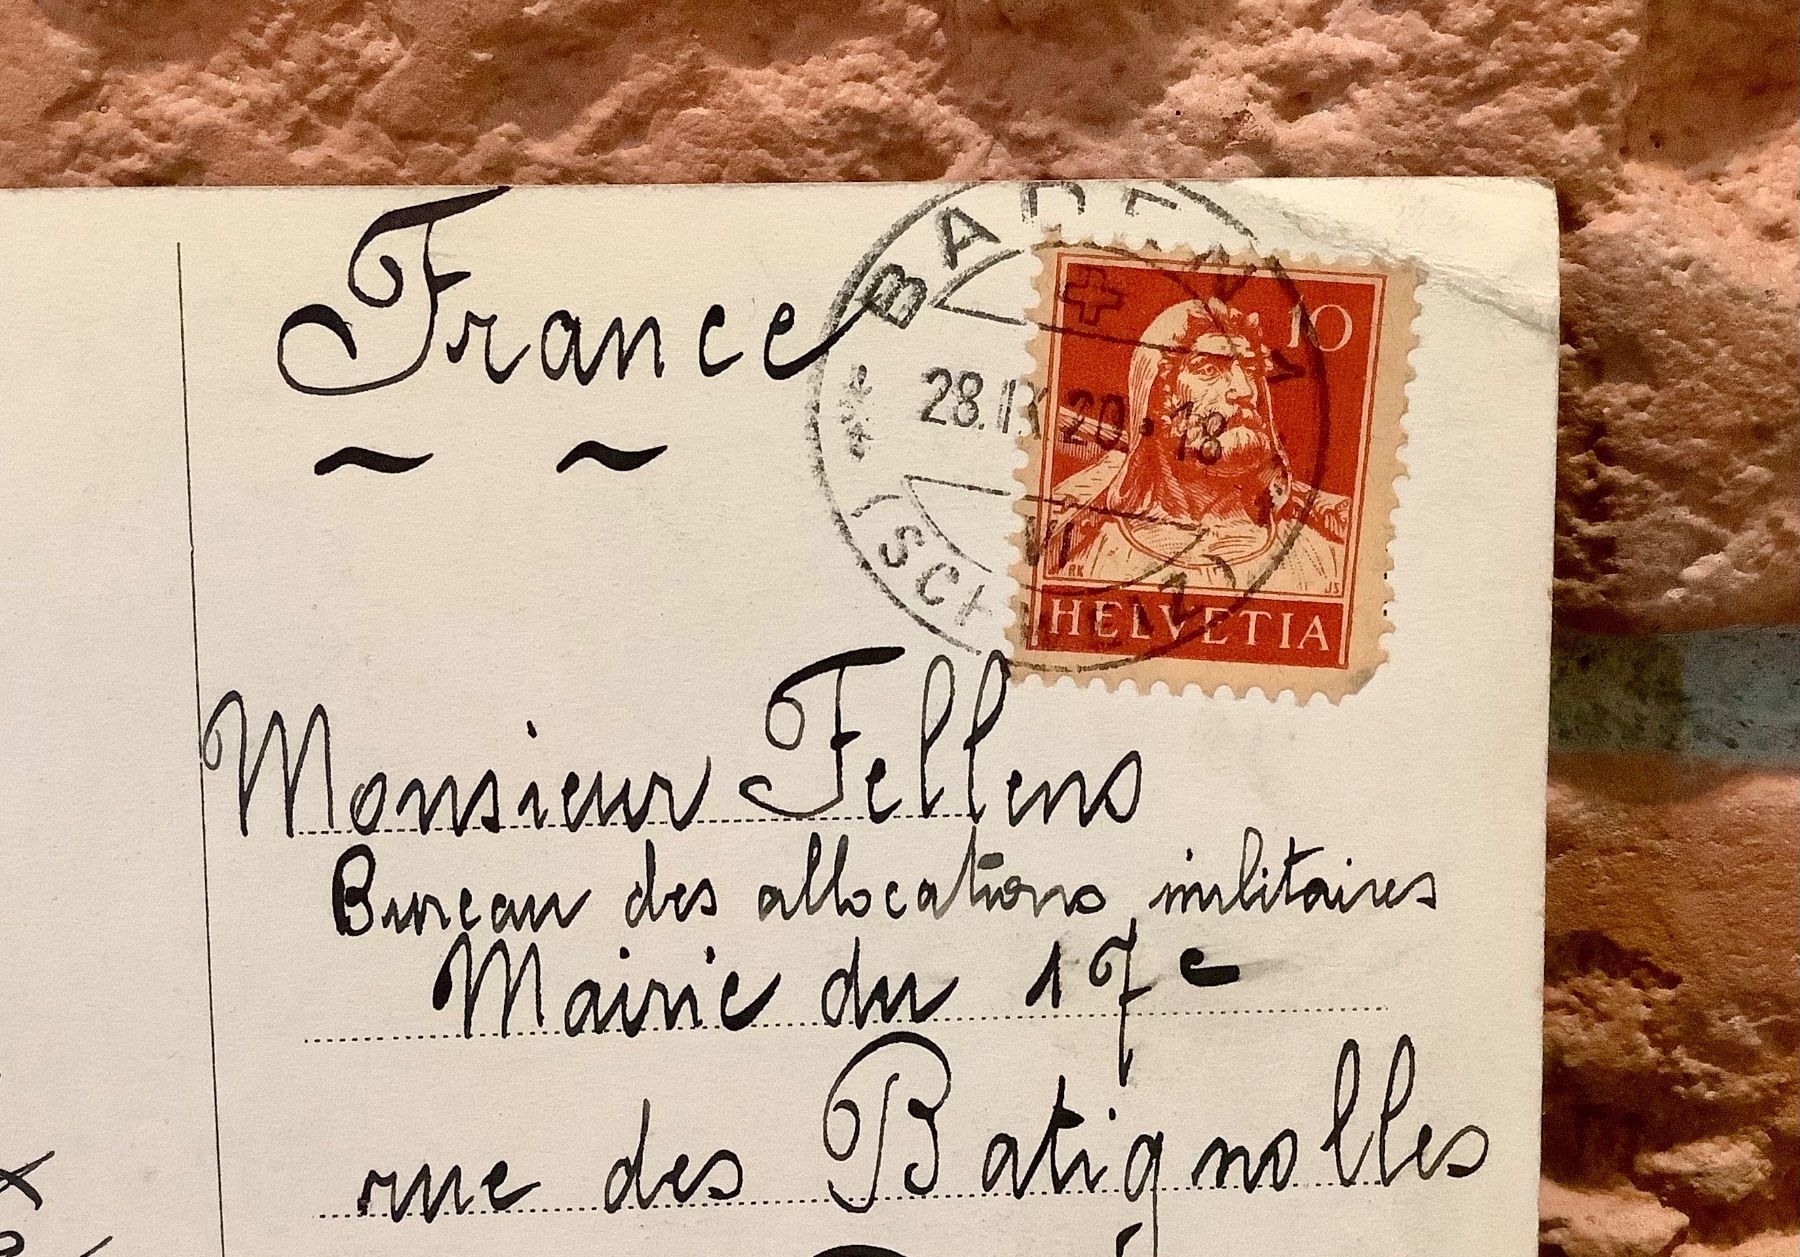 France
BADEN
28.IX.20.-18
VI
(SCHWEIZ)
10
RK JS
HELVETIA
Monsieur Fellens
Bureau des allocations militaires
Mairie du 17e
rue des Batignolles